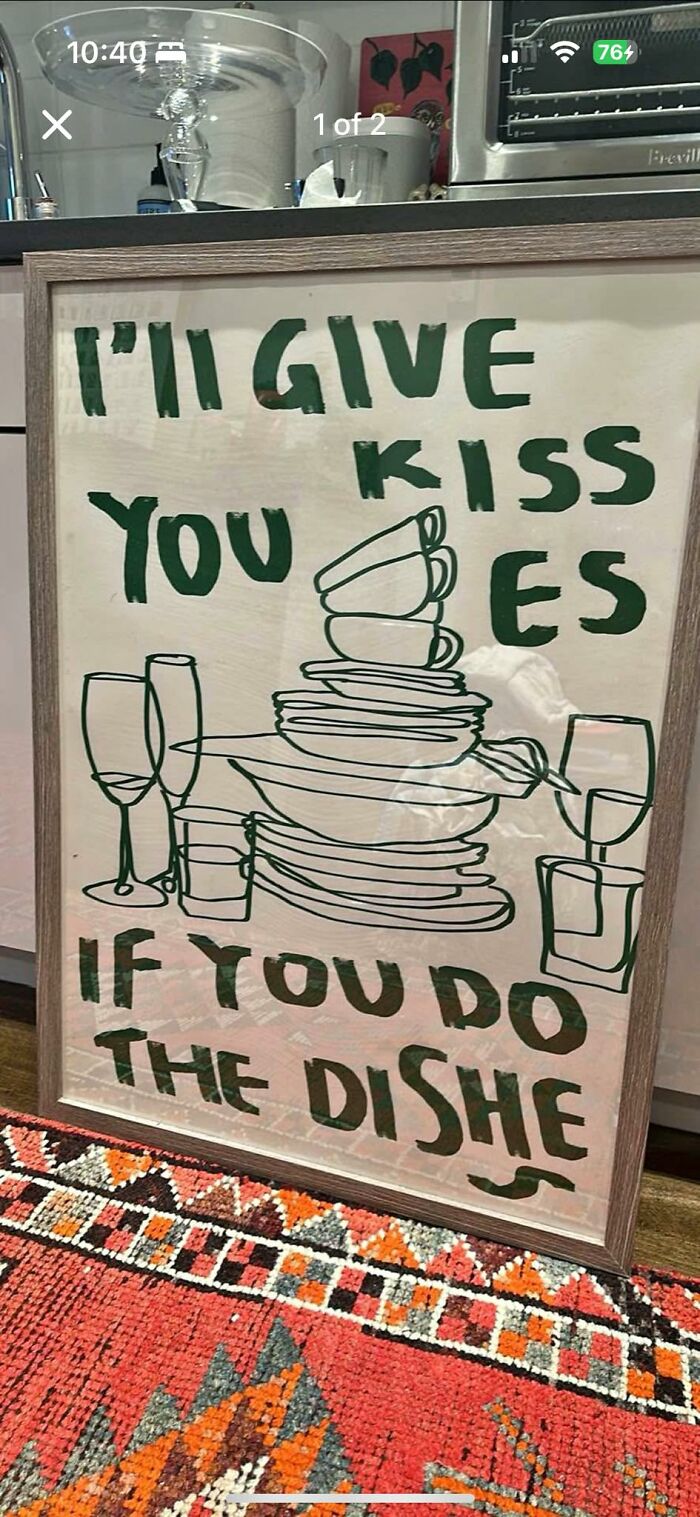 10:40
76
1 of 2
Brevill
I'll GIVE
YOU KISS
ES
IF YOU DO
THE DISHE
S